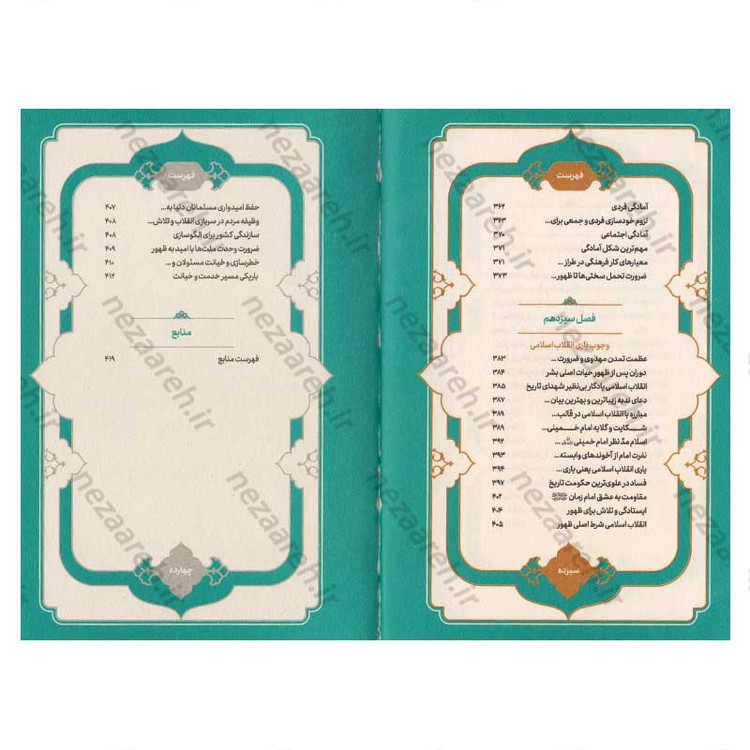 فهرست
آمادگی فردی ۳۶۲
لزوم خودسازی فردی و جمعی برای... ۳۶۳
آمادگی اجتماعی ۳۷۰
مهم‌ترین شکل آمادگی ۳۷۱
معیارهای کار فرهنگی در طراز ... ۳۷۱
ضرورت تحمل سختی‌ها تا ظهور... ۳۷۳
فصل سیزدهم
وجوب یاری انقلاب اسلامی
عظمت تمدن مهدوی و ضرورت ... ۳۸۳
دوران پس از ظهور حیات اصلی بشر ۳۸۴
انقلاب اسلامی یادگار بی‌نظیر شهدای تاریخ ۳۸۵
دعای ندبه زیباترین و بهترین بیان ... ۳۸۷
مبارزه با انقلاب اسلامی در قالب... ۳۸۹
شکایت و گلایه امام خمینی... ۳۸۹
اسلام مدّ نظر امام خمینی ۳۹۲
نفرت امام از آخوندهای وابسته... ۳۹۳
یاری انقلاب اسلامی یعنی یاری... ۳۹۴
فساد در علوی‌ترین حکومت تاریخ ۳۹۷
مقاومت به عشق امام زمان ۴۰۲
ایستادگی و تلاش برای ظهور ۴۰۴
انقلاب اسلامی شرط اصلی ظهور ۴۰۵
سیزده
فهرست
حفظ امیدواری مسلمانان دنیا به... ۴۰۷
وظیفه مردم در سربازی انقلاب و تلاش... ۴۰۸
سازندگی کشور برای الگوسازی ۴۰۸
ضرورت وحدت ملت‌ها با امید به ظهور ۴۰۹
خطرسازی و خیانت مسئولان و ... ۴۱۰
باریکی مسیر خدمت و خیانت ۴۱۲
منابع
فهرست منابع ۴۱۹
چهارده
nezaareh.ir